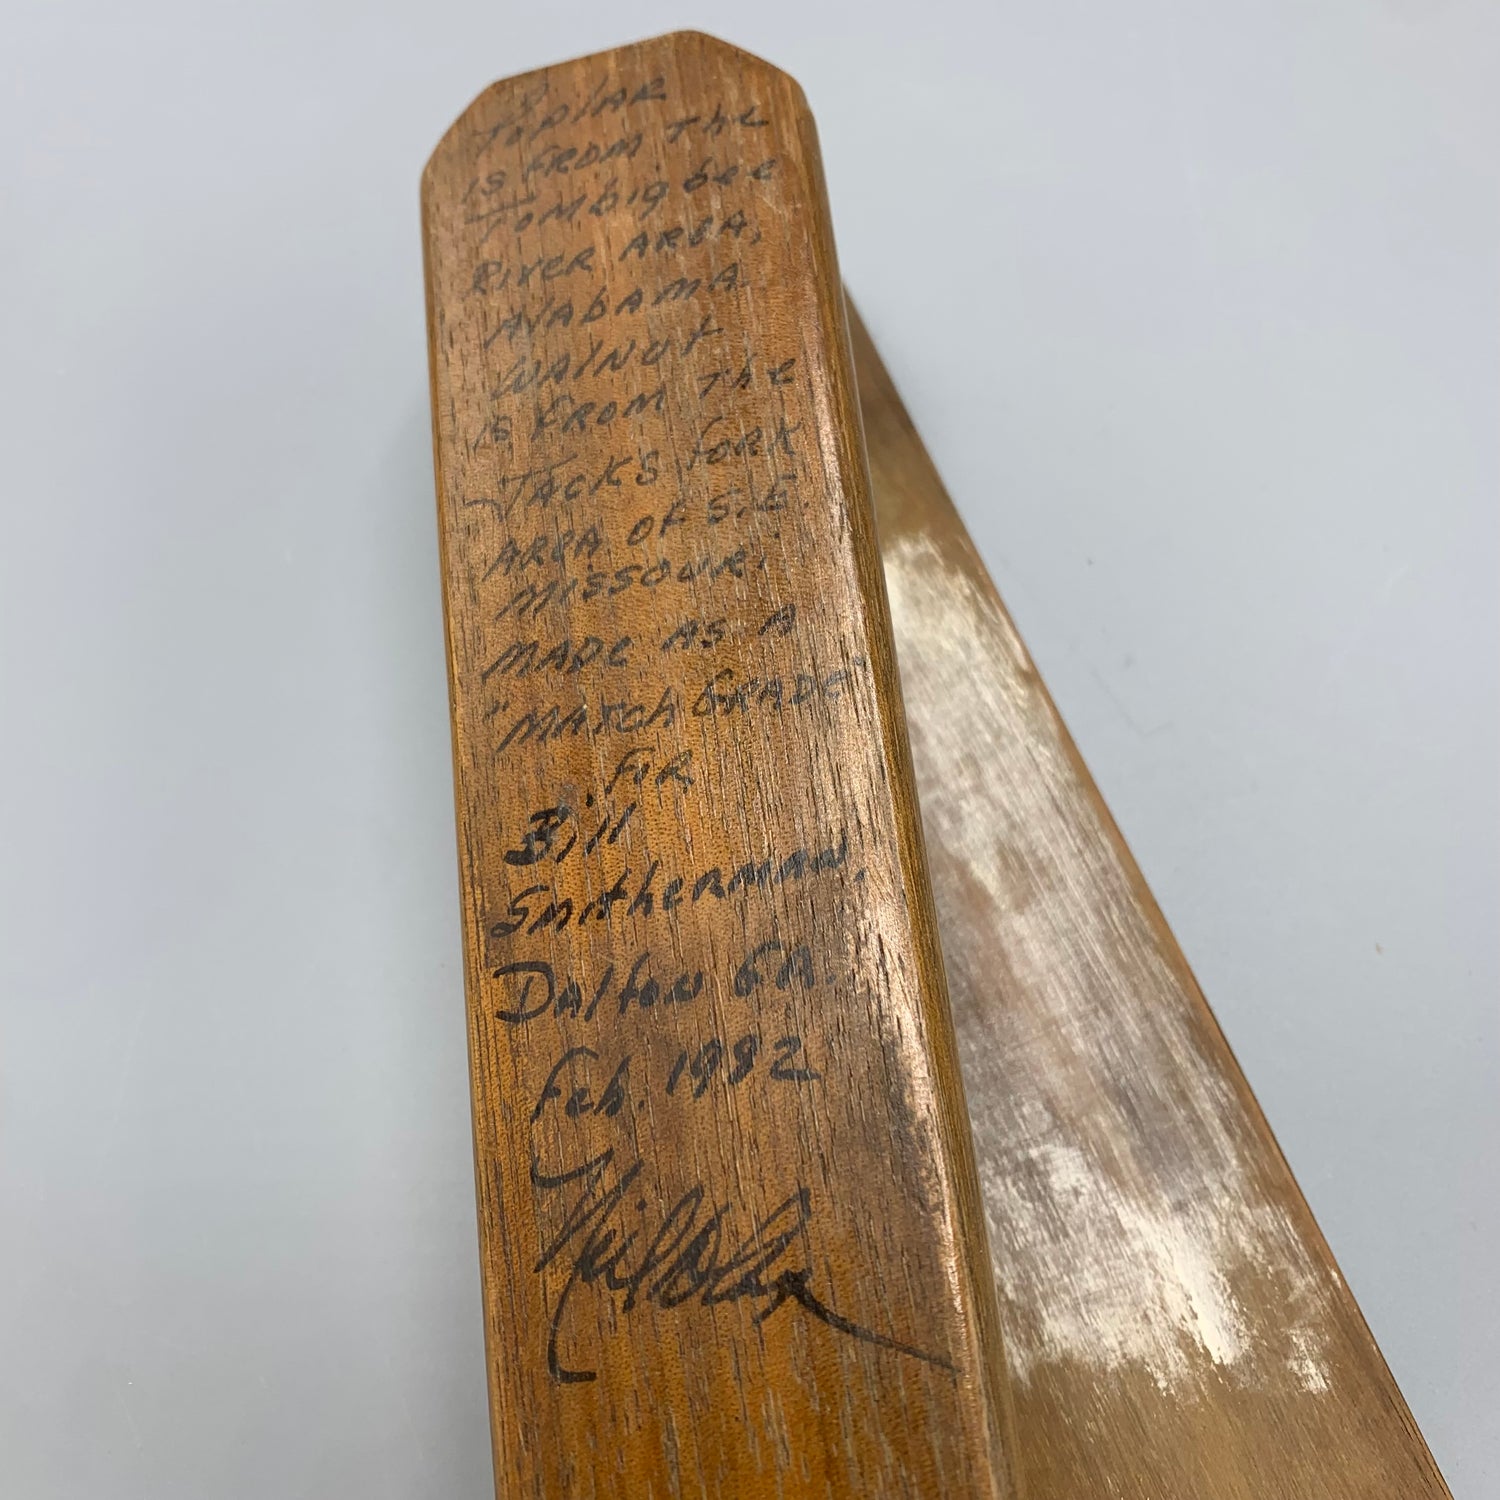 Poplar
is from the
Tombigbee
River Area,
Alabama.
Walnut
is from the
Jacks Fork
Area of S.E.
Missouri
Made as a
"Match Grade"
for
Bill
Smitherman,
Dalton GA.
Feb. 1992
Neil Cost